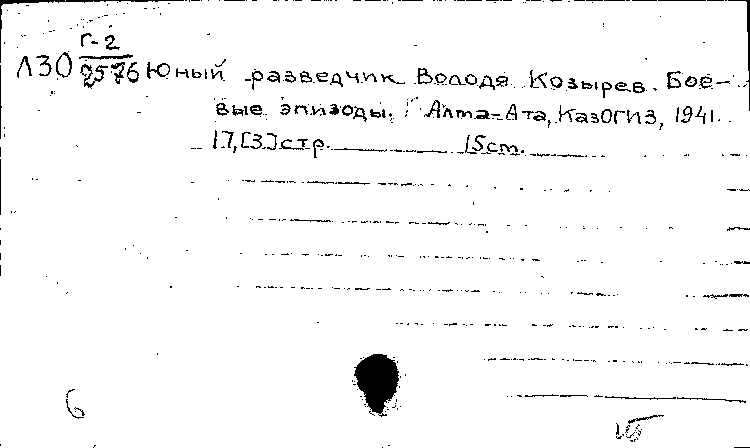 Г-2
Л30 9576 Юный разведчик Володя Козырев. Бое-
вые эпизоды. Алма-Ата, КазОГИЗ, 1941.
17,[3]стр. 15см.
6